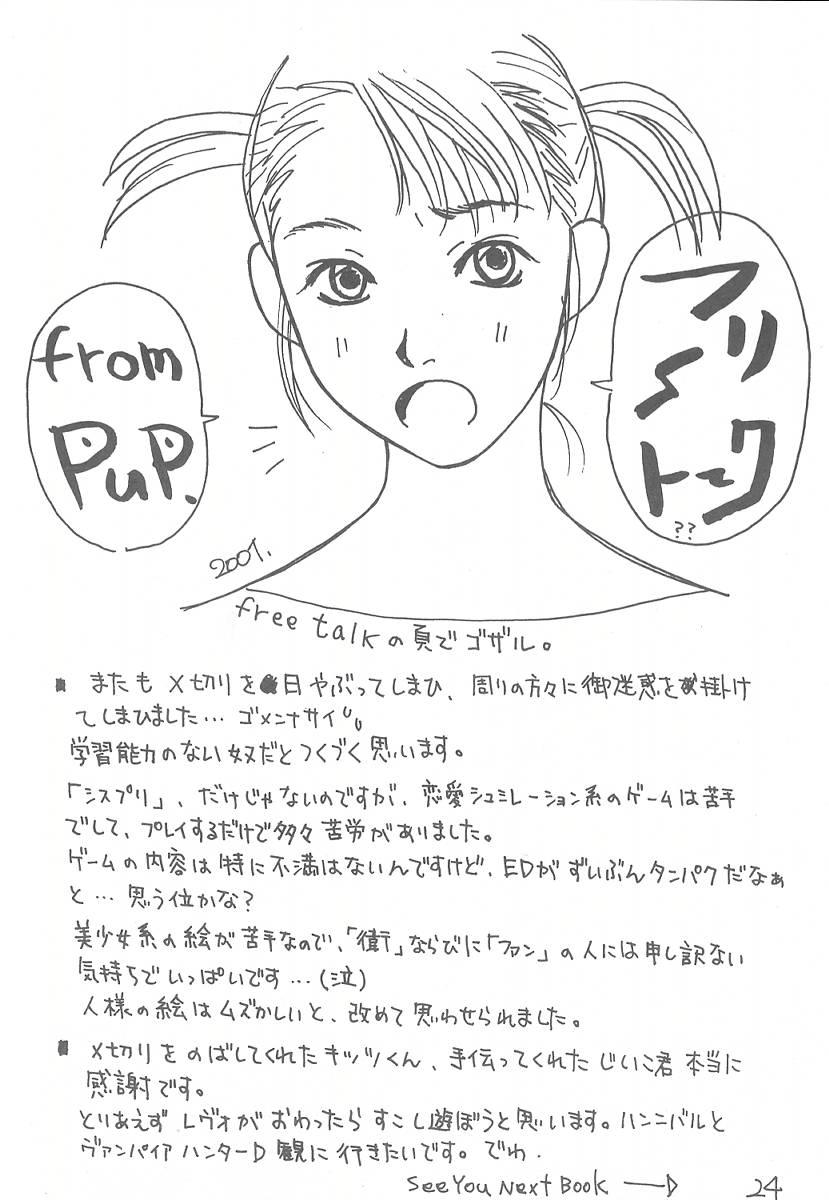 from
PuP.
フリ
〜
トーク
??
2001.
free talkの頁でゴザル。
またも〆切りを日やぶってしまひ、周りの方々に御迷惑を掛け
てしまひました…ゴメンナサイ
学習能力のない奴だとつくづく思います。
「シスプリ」、だけじゃないのですが、恋愛シュミレーション系のゲームは苦手
でして、プレイするだけで多々苦労がありました。
ゲームの内容は特に不満はないんですけど、EDがずいぶんタンパクだなぁ
と…思う位かな?
美少女系の絵が苦手なので、「衛」ならびに「ファン」の人には申し訳ない
気持ちでいっぱいです…(泣)
人様の絵はムズかしいと、改めて思わせられました。
〆切りをのばしてくれたキツツくん、手伝ってくれたじいこ君本当に
感謝です。
とりあえずレヴォがおわったらすこし遊ぼうと思います。ハンニバルと
ヴァンパイアハンターD観に行きたいです。でわ.
See You Next Book →
24